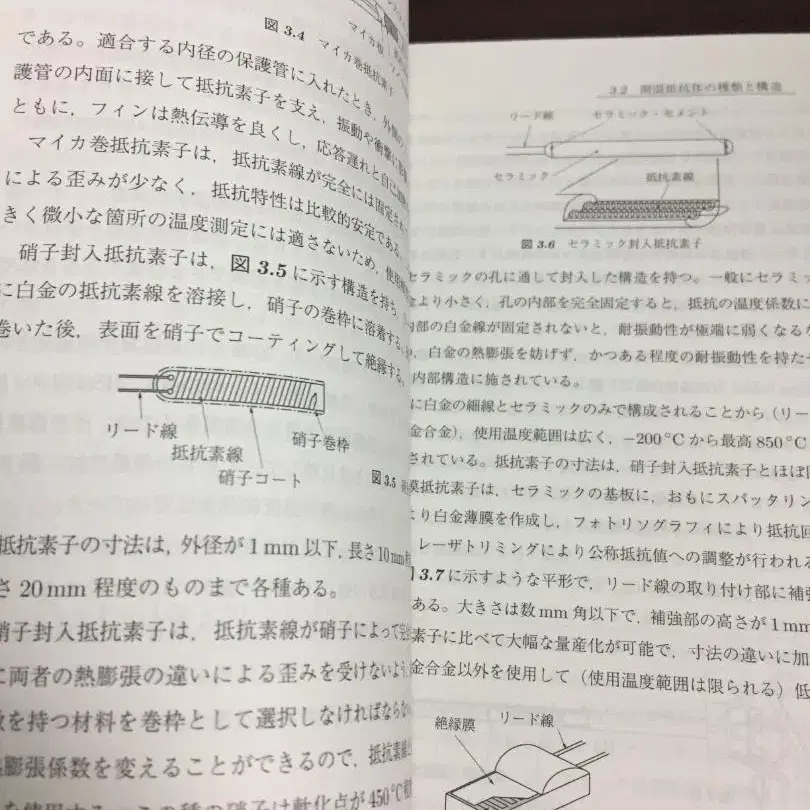 図 3.4 マイカ巻抵抗素子
である。適合する内径の保護管に入れたとき，外側の
護管の内面に接して抵抗素子を支え，振動や衝撃に
ともに，フィンは熱伝導を良くし，応答遅れと自己
マイカ巻抵抗素子は，抵抗素線が完全には固定され
による歪みが少なく，抵抗特性は比較的安定である。
きく微小な箇所の温度測定には適さないため，使用
硝子封入抵抗素子は，図 3.5 に示す構造を持ち，
に白金の抵抗素線を溶接し，硝子の巻枠に溶着する。
巻いた後，表面を硝子でコーティングして絶縁する。
リード線
抵抗素線
硝子コート
硝子巻枠
図 3.5
抵抗素子の寸法は，外径が 1 mm 以下，長さ 10 mm
さ 20 mm 程度のものまで各種ある。
硝子封入抵抗素子は，抵抗素線が硝子によって完
に両者の熱膨張の違いによる歪みを受けないよう
数を持つ材料を巻枠として選択しなければならな
膨張係数を変えることができるので，抵抗素線
を使用する。この種の硝子は軟化点が 450℃
3.2 測温抵抗体の種類と構造
リード線
セラミック・セメント
セラミック
抵抗素線
図 3.6 セラミック封入抵抗素子
セラミックの孔に通して封入した構造を持つ。一般にセラミッ
金より小さく，孔の内部を完全固定すると，抵抗の温度係数に
内部の白金線が固定されないと，耐振動性が極端に弱くなる
，白金の熱膨張を妨げず，かつある程度の耐振動性を持た
内部構造に施されている。
に白金の細線とセラミックのみで構成されることから（リー
金合金），使用温度範囲は広く，−200℃から最高 850℃
されている。抵抗素子の寸法は，硝子封入抵抗素子とほぼ
膜抵抗素子は，セラミックの基板に，おもにスパッタリン
より白金薄膜を作成し，フォトリソグラフィにより抵抗回
レーザトリミングにより公称抵抗値への調整が行われる
3.7 に示すような平形で，リード線の取り付け部に補強
ある。大きさは数 mm 角以下で，補強部の高さが 1 mm
素子に比べて大幅な量産化が可能で，寸法の違いに加
金合金以外を使用して（使用温度範囲は限られる）低
絶縁膜
リード線